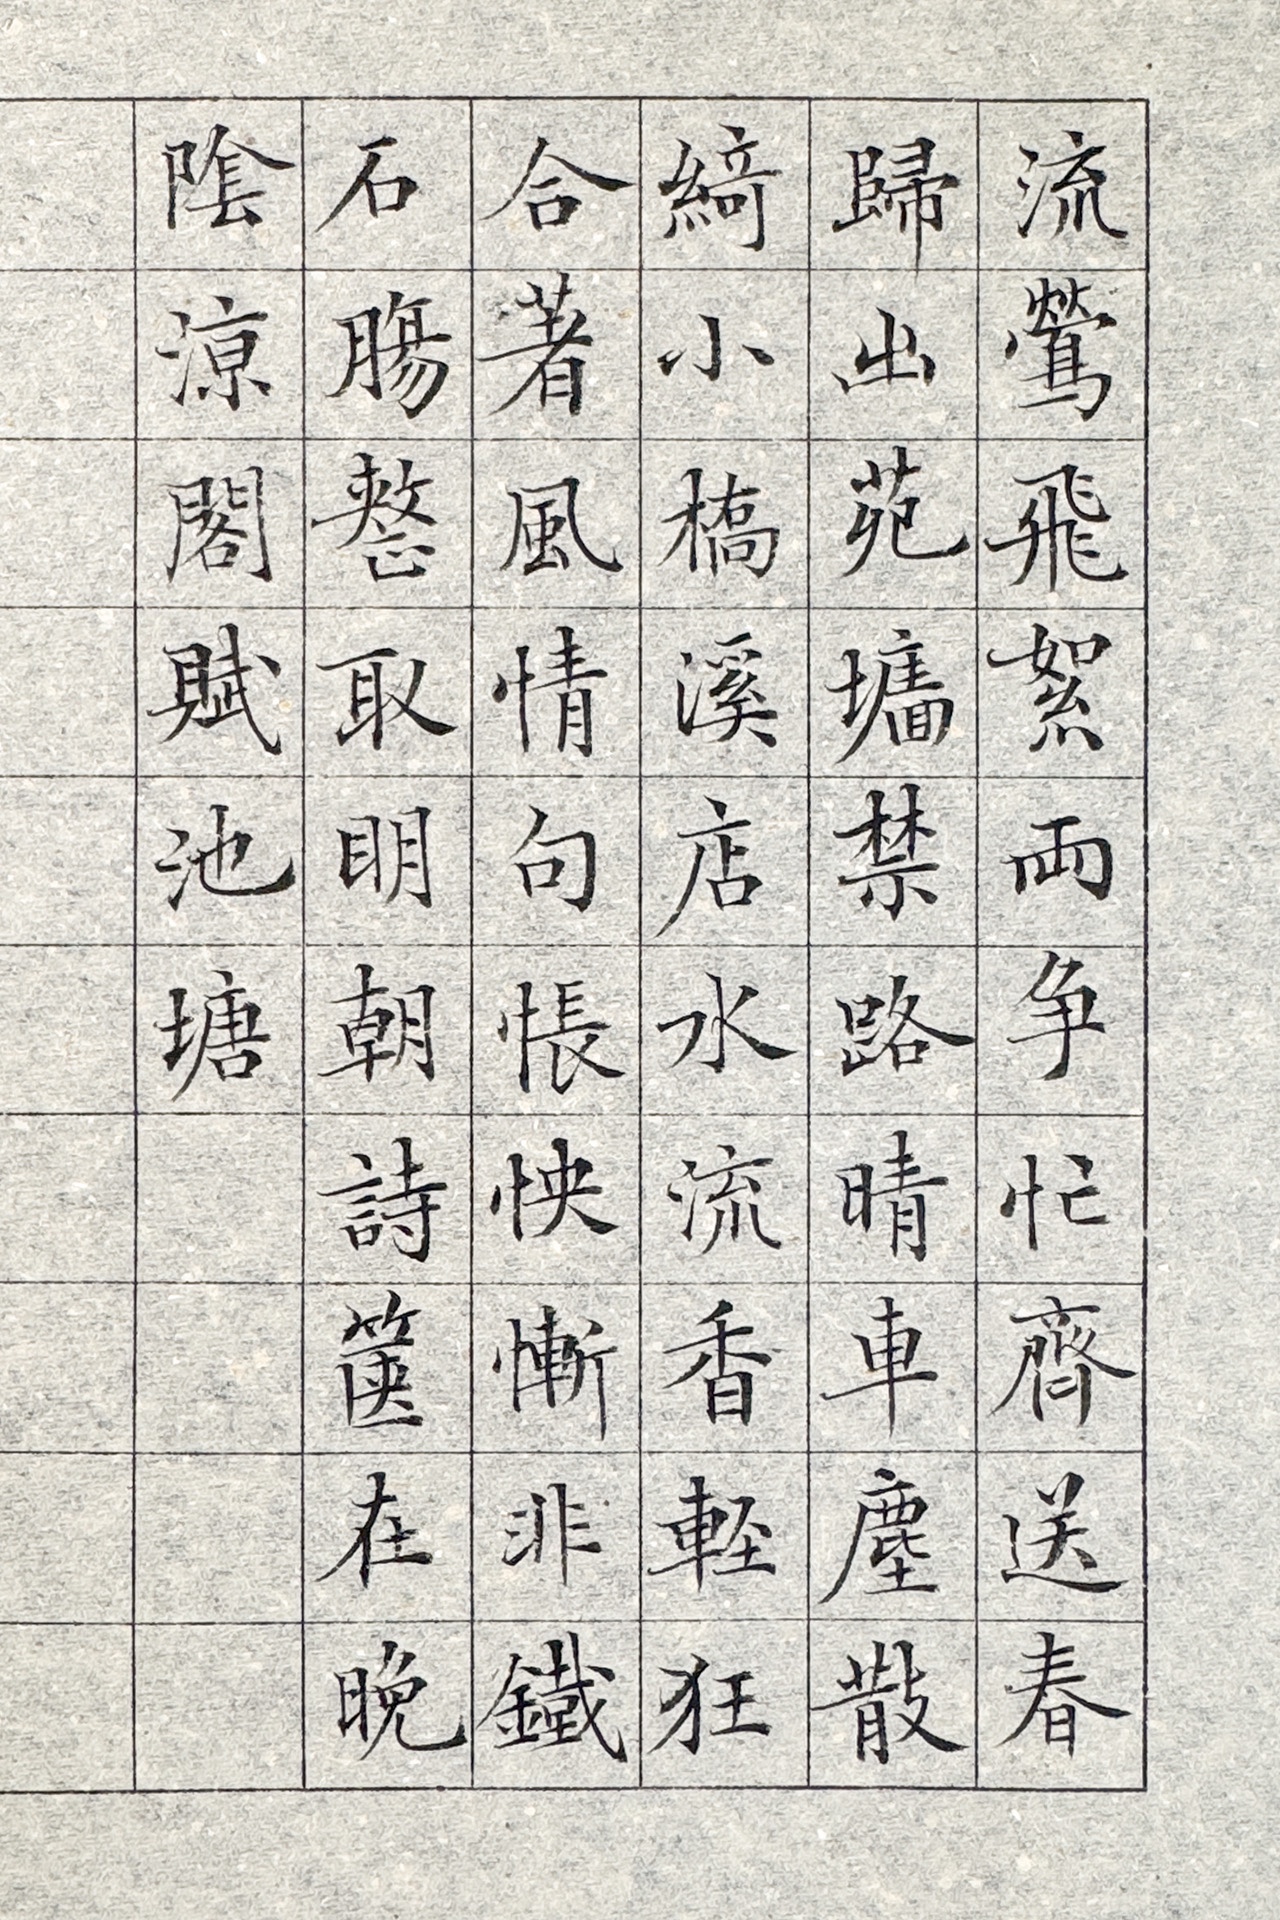 流鶯飛絮両争忙齊送春
歸出苑墻禁路晴車塵散
綺小橋溪店水流香軽狂
合著風情句悵怏慚非鐵
石腸整取明朝詩篋在晚
陰涼閣賦池塘